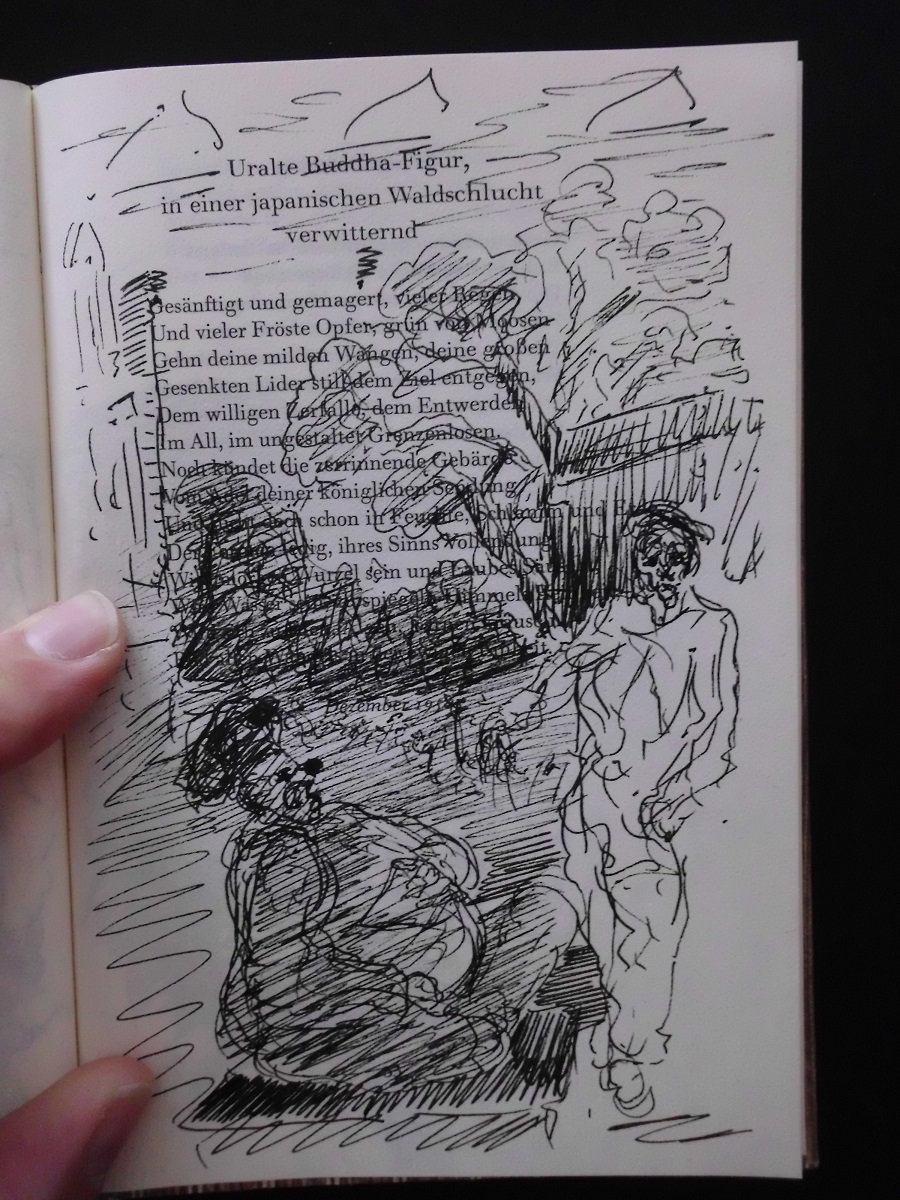 Uralte Buddha-Figur,
in einer japanischen Waldschlucht
verwitternd
Gesänftigt und gemagert, vieler Regen
Und vieler Fröste Opfer, grün von Moosen
Gehn deine milden Wangen, deine großen
Gesenkten Lider still dem Ziel entgegen,
Dem willigen Zerfalle, dem Entwerden
Im All, im ungestaltet Grenzenlosen.
Noch kündet die zerrinnende Gebärde
Vom Adel deiner königlichen Sendung
Und doch schon in Feuchte, Schlamm und
Der ledig, ihres Sinns Vollendung,
Wird Wurzel sein und Laubes
Wird Wasser
Dezember